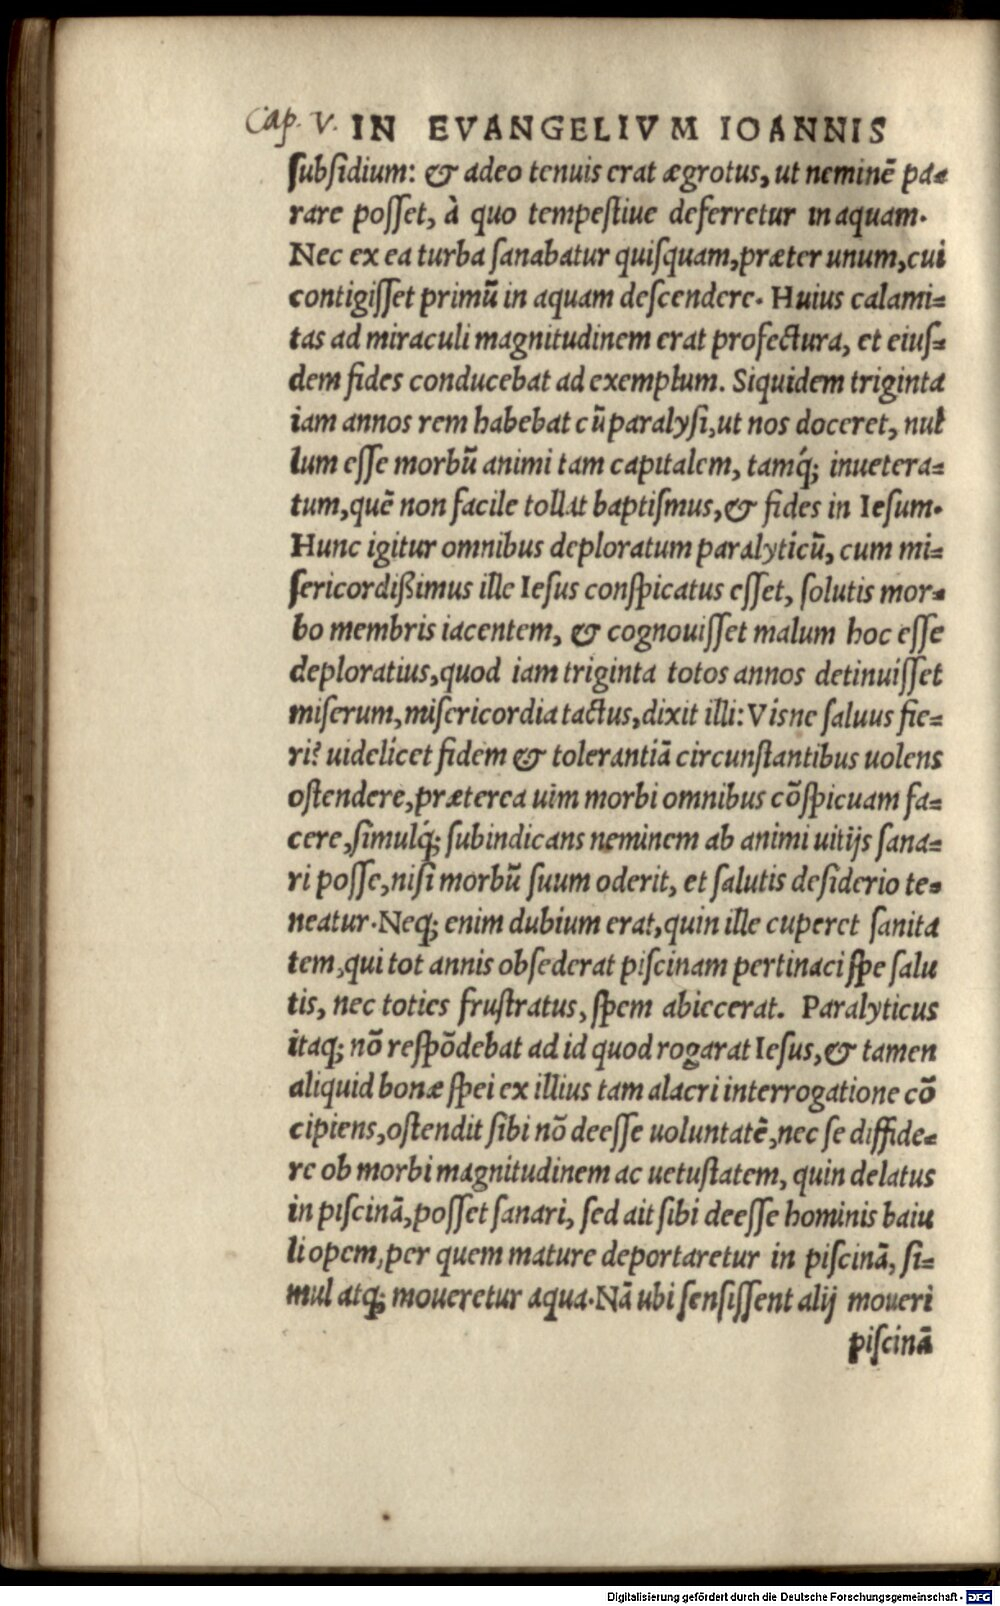 Cap. V. IN EVANGELIVM IOANNIS
ſubſidium: & adeo tenuis erat ægrotus, ut neminē pa-
rare poſſet, à quo tempeſtiue deferretur in aquam.
Nec ex ea turba ſanabatur quiſquam, præter unum, cui
contigiſſet primū in aquam deſcendere. Huius calami-
tas ad miraculi magnitudinem erat profectura, et eiuſ-
dem fides conducebat ad exemplum. Siquidem triginta
iam annos rem habebat cū paralyſi, ut nos doceret, nul
lum eſſe morbū animi tam capitalem, tamq́; inuetera-
tum, quē non facile tollat baptiſmus, & fides in Ieſum.
Hunc igitur omnibus deploratum paralyticū, cum mi-
ſericordißimus ille Ieſus conſpicatus eſſet, ſolutis mor-
bo membris iacentem, & cognouiſſet malum hoc eſſe
deploratius, quod iam triginta totos annos detinuiſſet
miſerum, miſericordia tactus, dixit illi: Viſne ſaluus fie-
ri? uidelicet fidem & tolerantiā circunſtantibus uolens
oſtendere, præterea uim morbi omnibus cōſpicuam fa-
cere, ſimulq́; ſubindicans neminem ab animi uitijs ſana-
ri poſſe, niſi morbū ſuum oderit, et ſalutis deſiderio te-
neatur. Neq; enim dubium erat, quin ille cuperet ſanita
tem, qui tot annis obſederat piſcinam pertinaci ſpe ſalu
tis, nec toties fruſtratus, ſpem abiecerat. Paralyticus
itaq; nō reſpōdebat ad id quod rogarat Ieſus, & tamen
aliquid bonæ ſpei ex illius tam alacri interrogatione cō
cipiens, oſtendit ſibi nō deeſſe uoluntatē, nec ſe diffide-
re ob morbi magnitudinem ac uetuſtatem, quin delatus
in piſcinā, poſſet ſanari, ſed ait ſibi deeſſe hominis baiu
li opem, per quem mature deportaretur in piſcinā, ſi-
mul atq; moueretur aqua. Nā ubi ſenſiſſent alij moueri
piſcinā
Digitalisierung gefördert durch die Deutsche Forschungsgemeinschaft - DFG